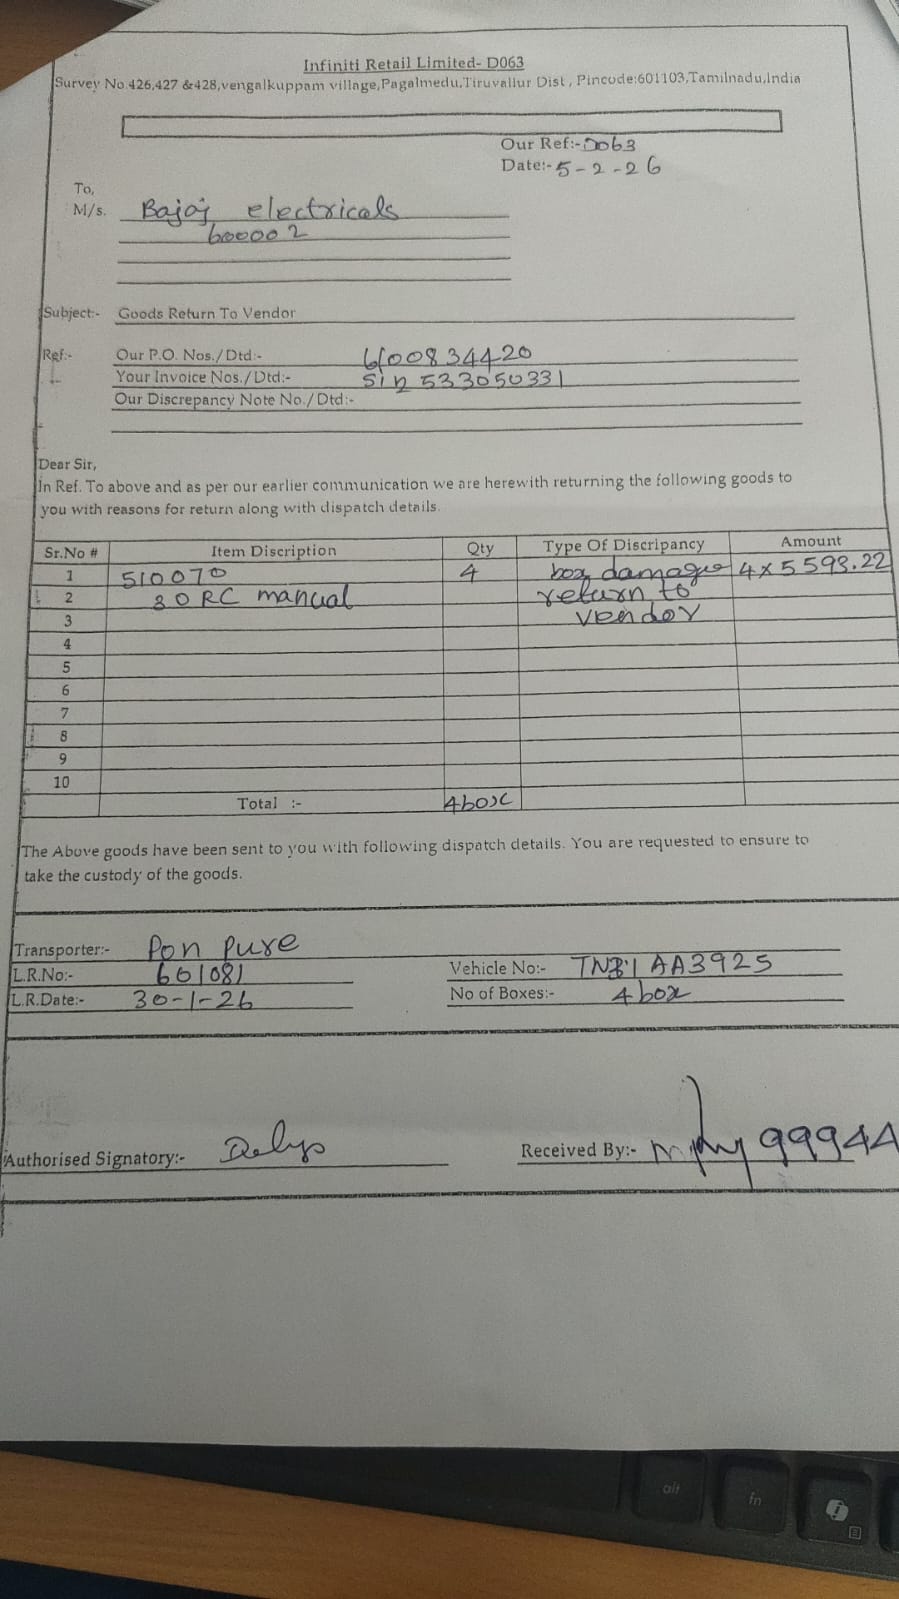 Infiniti Retail Limited- D063
Survey No.426,427 &428,vengalkuppam village,Pagalmedu,Tiruvallur Dist , Pincode:601103,Tamilnadu,India
Our Ref:- D063
Date:- 5-2-26
To,
M/s. Bajaj electricals
600002
Subject:- Goods Return To Vendor
Ref:- Our P.O. Nos./Dtd:- 6100834420
Your Invoice Nos./Dtd:- Sin 533050331
Our Discrepancy Note No./Dtd:-
Dear Sir,
In Ref. To above and as per our earlier communication we are herewith returning the following goods to
you with reasons for return along with dispatch details.
Sr.No # Item Discription Qty Type Of Discripancy Amount
1 510070 4 box damage 4x5593.22
2 30 RC manual return to
3 vendor
4
5
6
7
8
9
10
Total :- 4 box
The Above goods have been sent to you with following dispatch details. You are requested to ensure to
take the custody of the goods.
Transporter:- Pon pure
L.R.No:- 601081 Vehicle No:- AA3925
L.R.Date:- 30-1-26 No of Boxes:- 4 box
Authorised Signatory:- Received By:- 99944
alt
fn